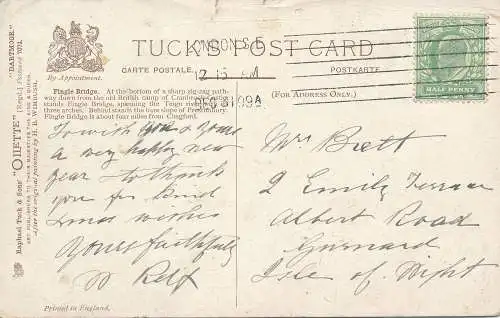 TUCK'S POST CARD
By Appointment.
CARTE POSTALE.
POSTKARTE.
(FOR ADDRESS ONLY.)
LONDON S.E.
12 15 AM
DEC 31 09
HALF PENNY
Fingle Bridge. At the bottom of a sharp zig-zag path-
way down from the old British camp of Cranbrook Castle
stands Fingle Bridge, spanning the Teign river with its
three arches. Behind stands the torn slope of Prestonbury.
Fingle Bridge is about four miles from Chagford.
To wish you & yours
a very happy new
year & to thank
you for kind
Xmas wishes
Yours faithfully
W Relf
Mrs Brett
2 Emily Terrace
Albert Road
Gurnard
Isle of Wight
Raphael Tuck & Sons' "OILETTE" [Regd.] Postcard 7073. "DARTMOOR."
ART PUBLISHERS TO THEIR MAJESTIES THE KING & QUEEN.
After the original painting by H. B. WIMBUSH.
Printed in England.